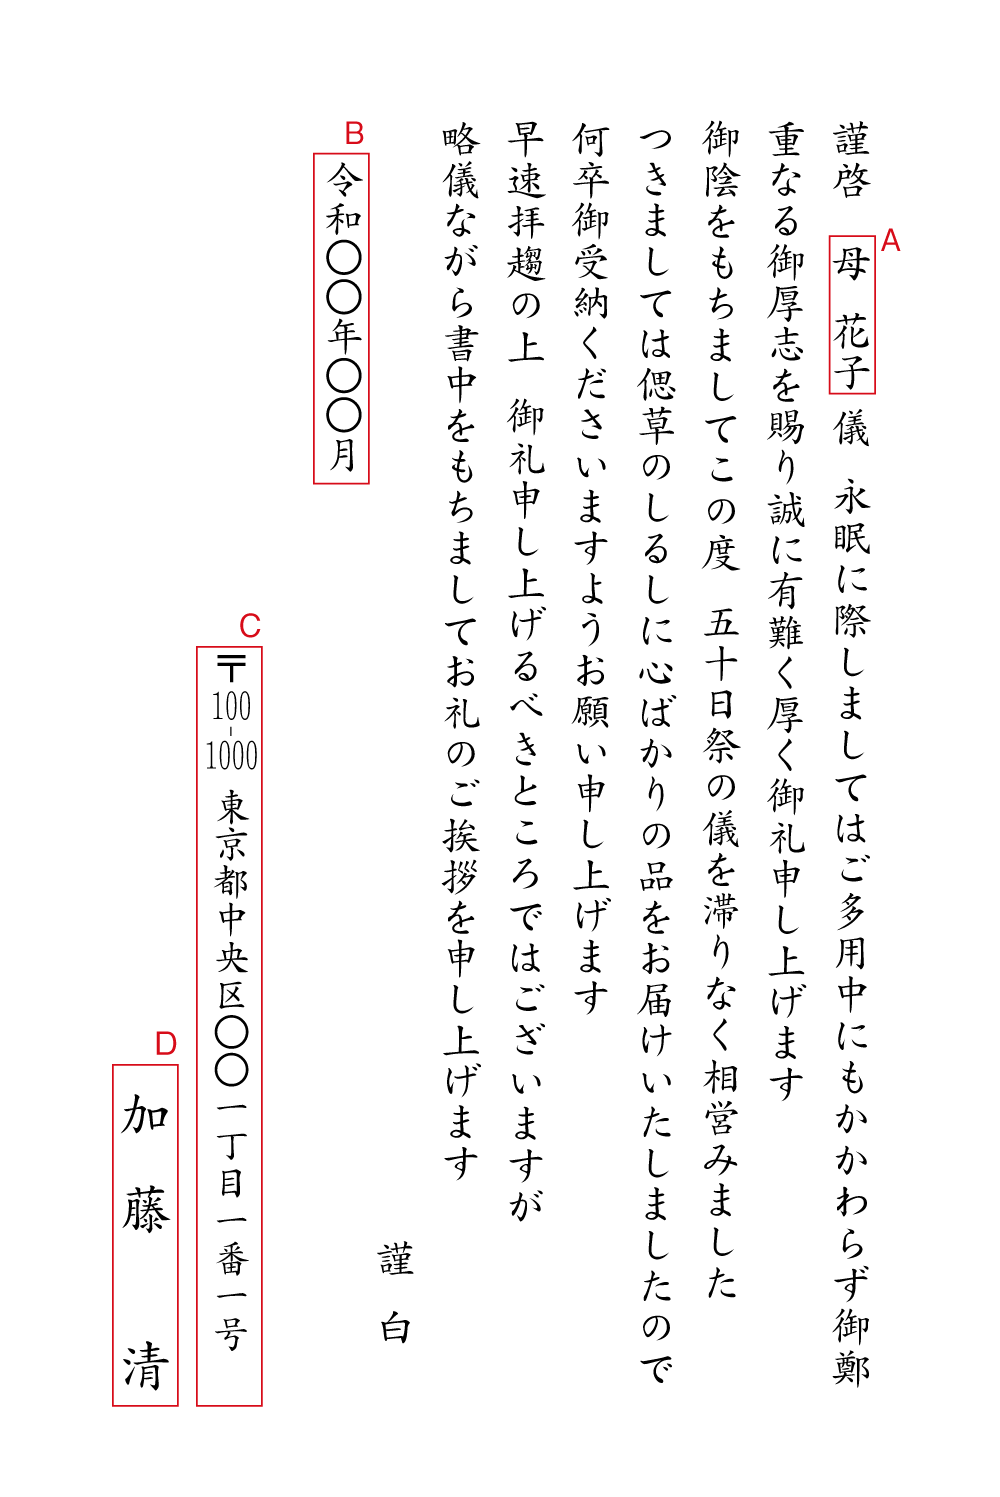 謹啓　母　花子　儀　永眠に際しましてはご多用中にもかかわらず御鄭
A
重なる御厚志を賜り誠に有難く厚く御礼申し上げます
御陰をもちましてこの度　五十日祭の儀を滞りなく相営みました
つきましては偲草のしるしに心ばかりの品をお届けいたしましたので
何卒御受納くださいますようお願い申し上げます
早速拝趨の上　御礼申し上げるべきところではございますが
略儀ながら書中をもちましてお礼のご挨拶を申し上げます
謹白
B
令和〇〇年〇〇月
C
〒100-1000 東京都中央区〇〇一丁目一番一号
D
加藤　清